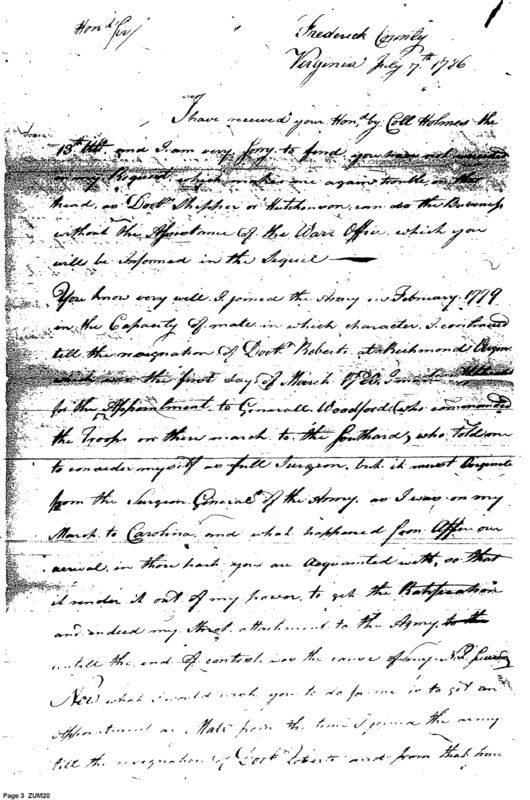 1
Hon.d Sir/
Frederick County
Virginia July 7.th 1786
I have received your Hon.d by Coll Holmes the
13.th Ult. and I am very sorry to find you have not
on my Request, which makes me again trouble on this
head, as Doct.r or Hutchenson, can do the Business
without the Assistance of the Warr Office, which you
will be Informed in the Sequel
You know very well I joined the Army in February 1779
in the Capacity of mate in which character, I continued
till the resignation of Doct.r Roberts, at Richmond
which was the first day of March 1780.
for the Appointment, to Generall Woodford (who commanded
the Troops on there march to the Southard, who told me
to consider myself as full Surgeon, but it must
from the Surgeon General of the Army, as I was on my
March to Carolina and what happened soon After our
arrival in those parts you are Acquainted with, so that
it render it out of my power, to get the Ratification
and indeed my attachment to the Army to the
untill the end of was the cause of my
Now what I would wish you to do for me is to get an
Appointment as Mate from the time I joined the army
till the resignation of Doct.r Roberts and from that time
Page 3 ZUM20